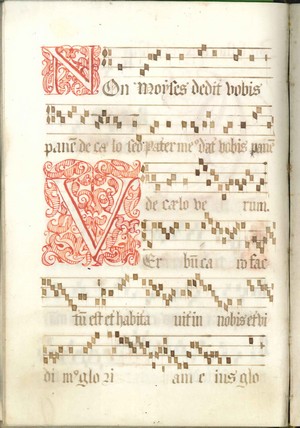 NOn moyses dedit vobis
panē de cælo sed pater meꝰ dat vobis panē
de cælo ve rum.
VEr bū ca ro fac
tū est et habita uit in nobis et vi
di mꝰ glo ri am e ius glo